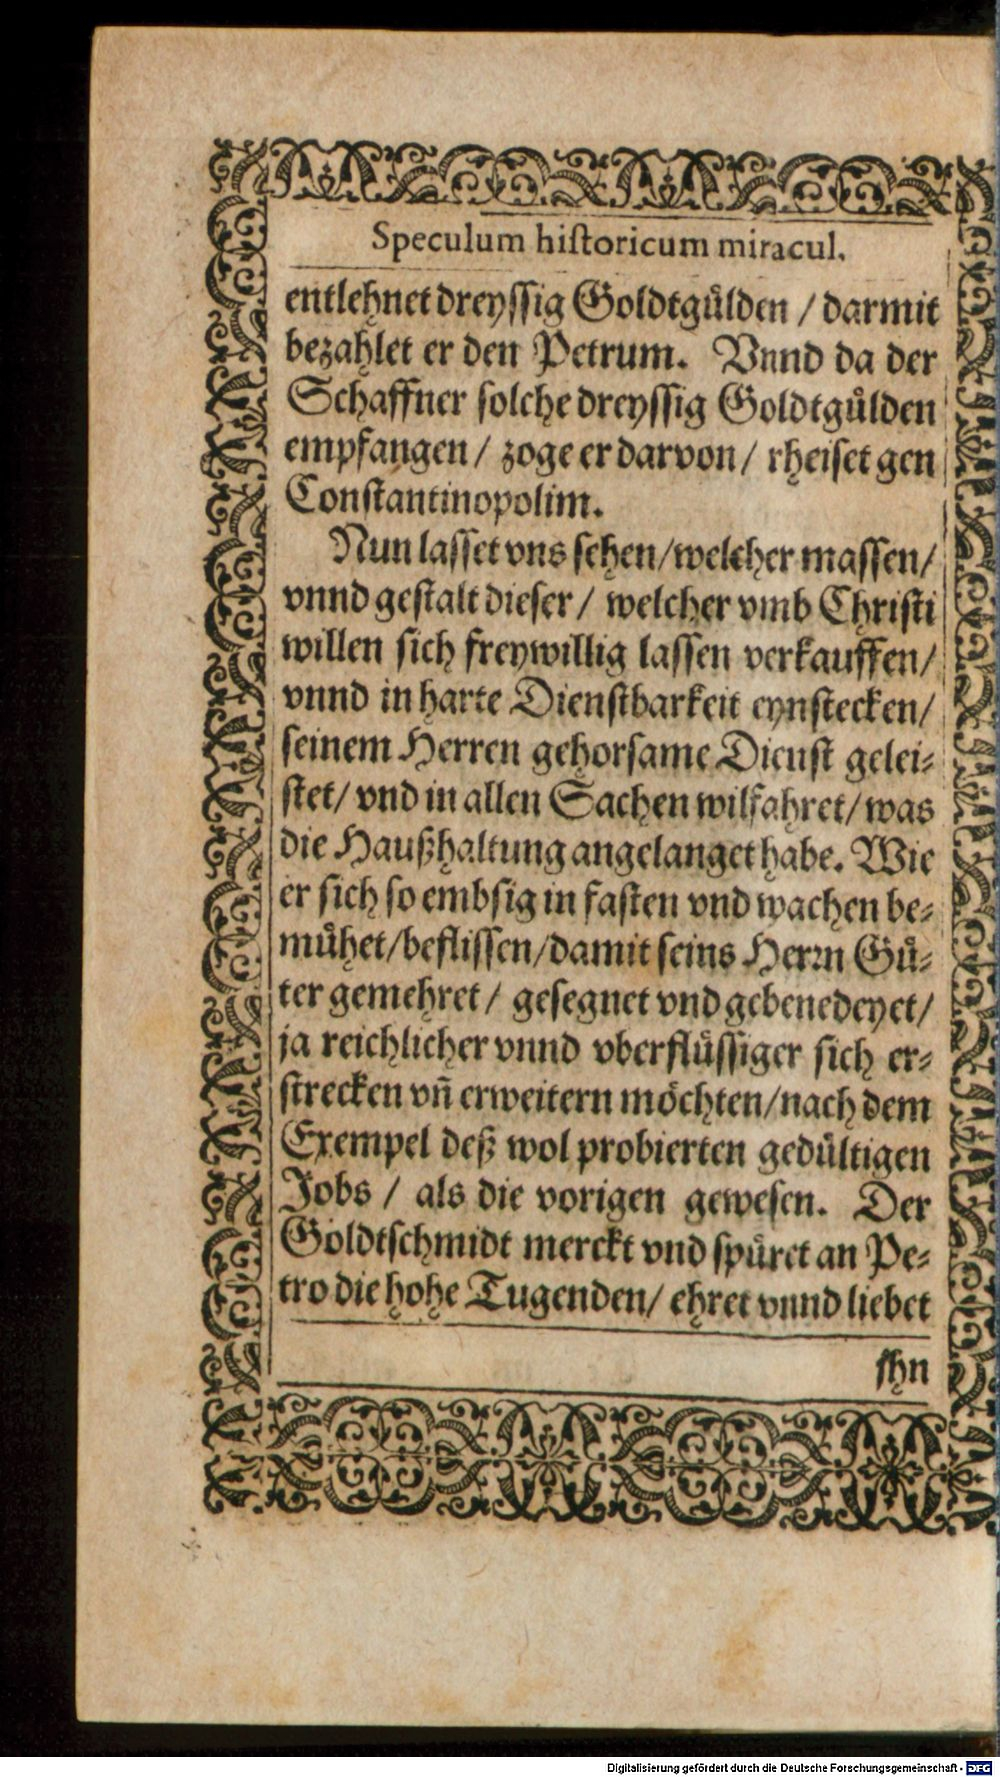 Speculum hiſtoricum miracul.
entlehnet dreyſſig Goldtgůlden / darmit
bezahlet er den Petrum. Vnnd da der
Schaffner ſolche dreyſſig Goldtgůlden
empfangen / zoge er darvon / rheiſet gen
Conſtantinopolim.
Nun laſſet vns ſehen / welcher maſſen /
vnnd geſtalt dieſer / welcher vmb Chriſti
willen ſich freywillig laſſen verkauffen /
vnnd in harte Dienſtbarkeit eynſtecken /
ſeinem Herren gehorſame Dienſt gelei⸗
ſtet / vnd in allen Sachen wilfahret / was
die Haußhaltung angelanget habe. Wie
er ſich ſo embſig in faſten vnd wachen be⸗
můhet / befliſſen / damit ſeins Herꝛn Gů⸗
ter gemehret / geſegnet vnd gebenedeyet /
ja reichlicher vnnd vberflůſſiger ſich er⸗
ſtrecken vñ erweitern moͤchten / nach dem
Exempel deß wol probierten gedůltigen
Jobs / als die vorigen geweſen. Der
Goldtſchmidt merckt vnd ſpůret an Pe⸗
tro die hohe Tugenden / ehret vnnd liebet
jhn
Digitalisierung gefördert durch die Deutsche Forschungsgemeinschaft - DFG